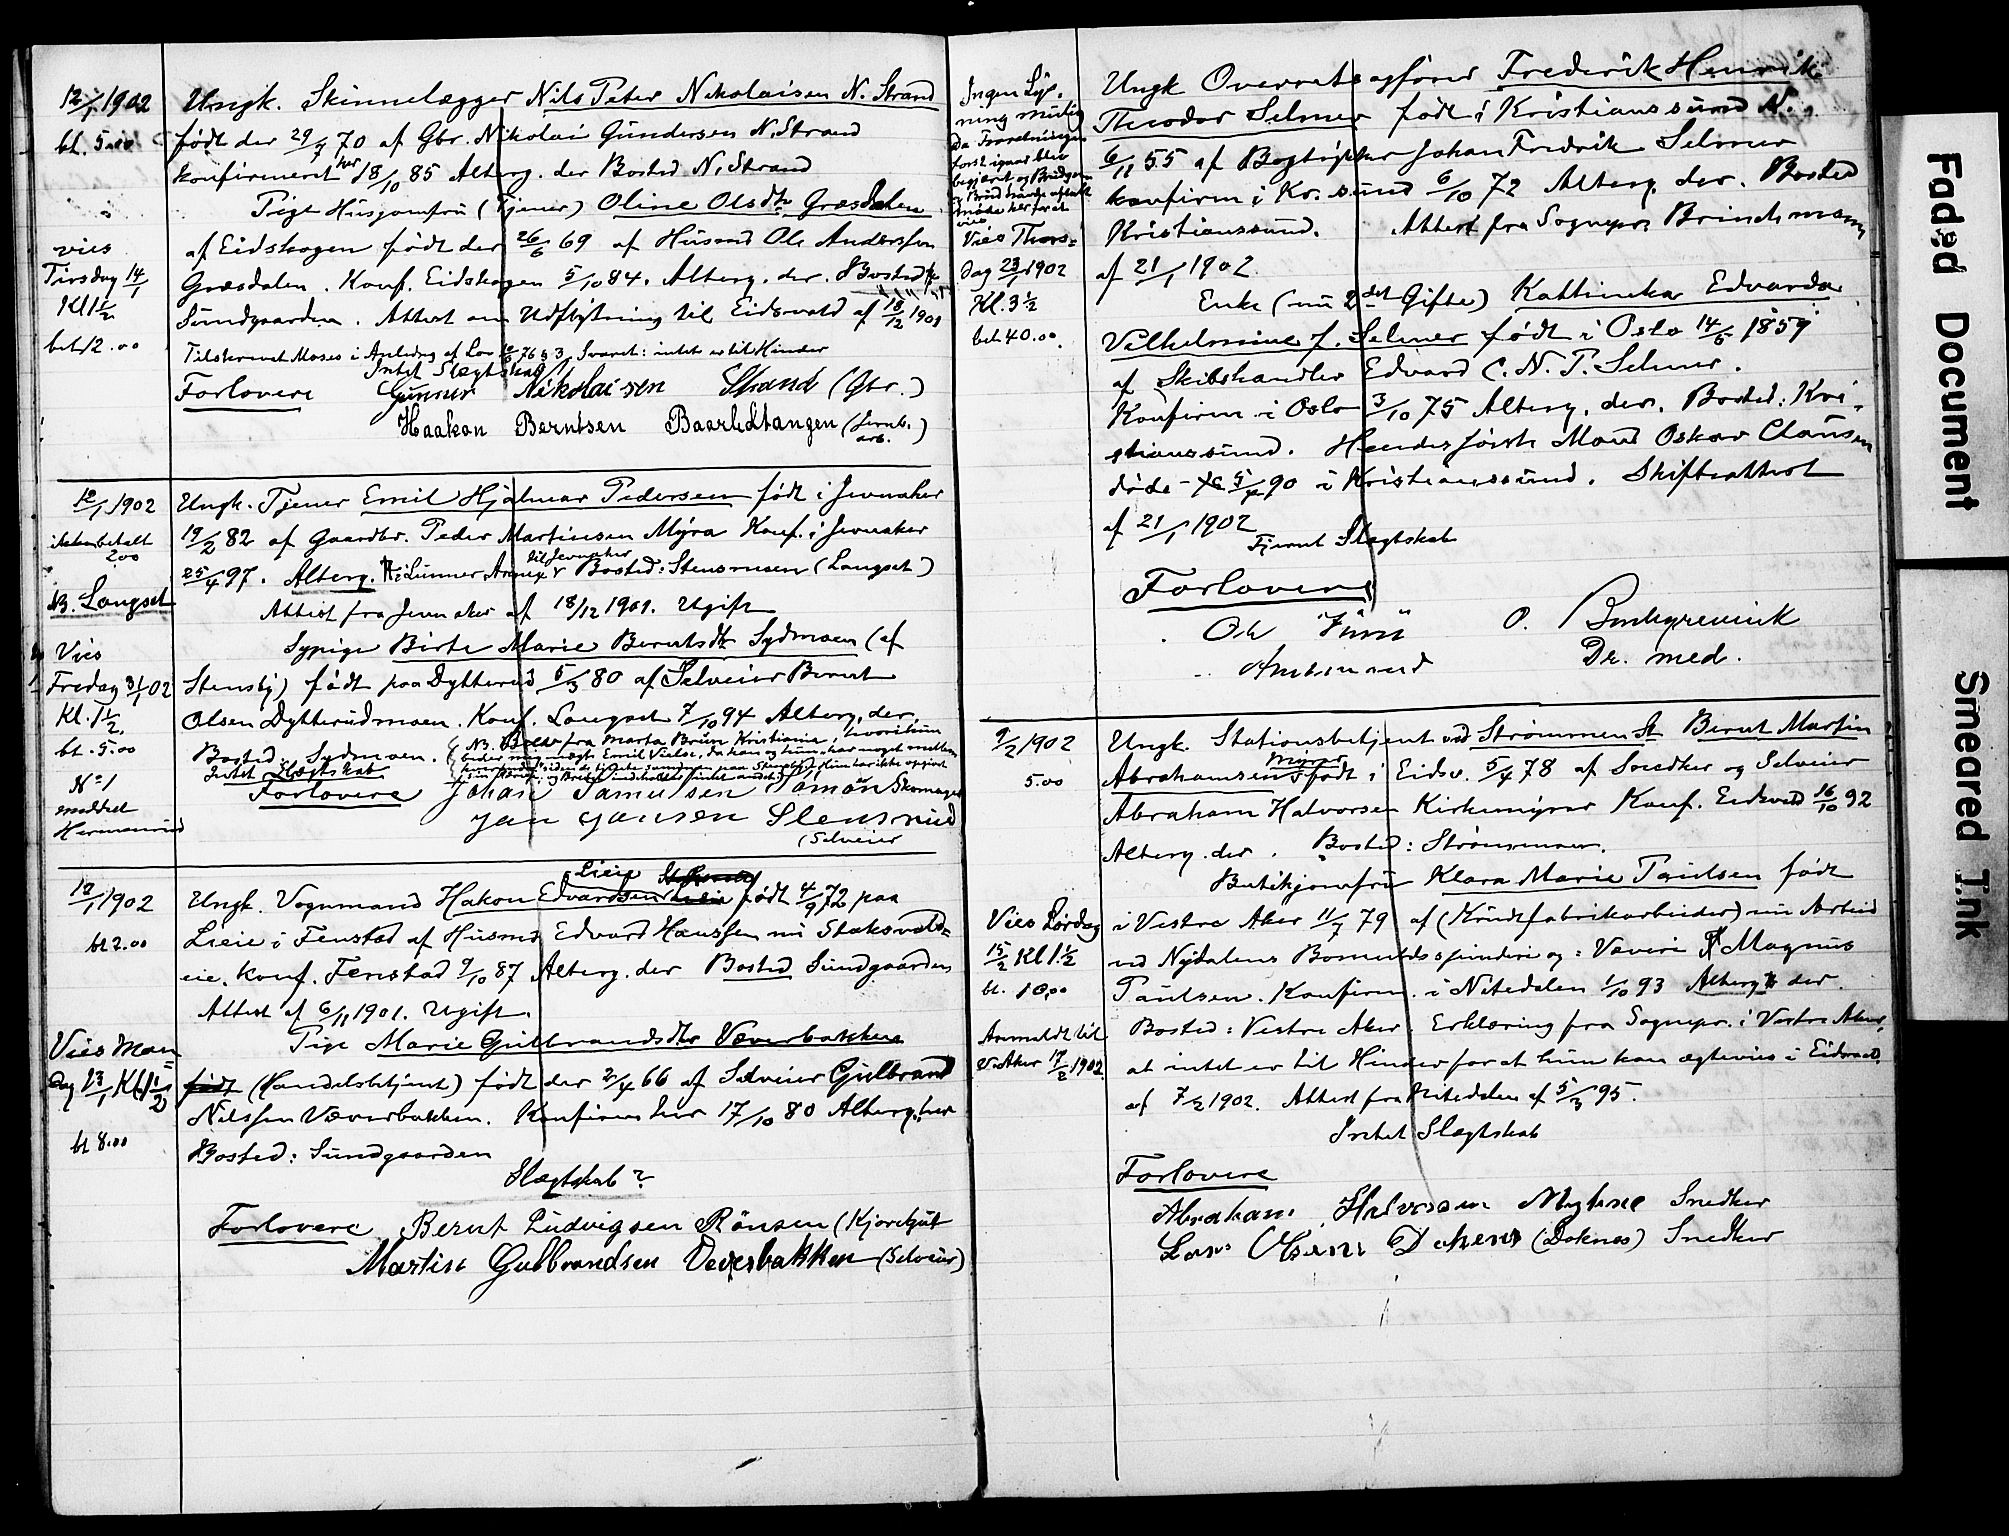 12/1 1902
bt. 5.00
vies
Tirsdag 14/1
Kl 1 1/2
bet 12.00
Ungk. Skinnelægger Nils Peter Nikolaisen N. Strand
født der 29/7 70 af Gbr. Nikolai Gundersen N. Strand
konfirmeret her 18/10 85 Alterg. der Bosted N. Strand
Pige Husjomfru (Tjener) Oline Olsdtr Græsdalen
af Eidskogen født der 26/6 69 af Husmd Ole Anderssen
Græsdalen. Konf. Eidskogen 5/10 84. Alterg. der. Bosted
Sundgaarden. Attest om Udflytning til Eidsvold af 18/12 1901
Tilskrevet Moses i Anledng af Lov 76 § 3 Svaret: intet er til Hinder
Intet Slægtskab
Forlovere Gunner Nikolaisen Strand (Gbr.)
Haakon Berntsen Baarlidtangen (Jernb. arb.)
12/1 1902
ikke betalt
2.00
NB. Langset
Vies
Fredag 31/1 02
Kl. 1 1/2
bt. 5.00
No 1
meldt
Hermansrud
Ungk. Tjener Emil Hjalmar Pedersen født i Jevnaker
19/2 82 af Gaardbr. Peder Martinsen Myra Konf. i Jevnaker
25/4 97. Alterg. i Lunner Annex til Jevnaker Bosted: Stensrusen (Langset)
Attest fra Jevnaker af 18/12 1901. Ugift
Sypige Birte Marie Berntsdtr Sydmoen (af
Stensby) født paa Dytterud 5/3 80 af Selveier Bernt
Olsen Dytterudmoen. Konf. Langset 7/10 94 Alterg. der.
Bosted: Sydmoen. (NB. fra Marta Brun Kristiania, hvori hun
Intet Slægtskab
Forlovere Johan Samuelsen Tømon Skomager
Jan Jansen Stensrud
(Selveier
12/1 1902
bt 2.00
Vies Man
dag 13/1 Kl 1 1/2
bt 8.00
Lieie
Ungk. Vognmand Hakon Edvardsen født 4/9 72 paa
Lieie i Fenstad af Husmd Edvard Hanssen nu Staksvolds-
eie. Konf. Fenstad 9/10 87 Alterg. der Bosted Sundgaarden
Attest af 6/11 1901. Ugift.
Pige Marie Gulbrandsdtr Væverbakken
født (Handelsbetjent) født der 2/4 66 af Selveier Gulbrand
Nilssen Væverbakken. Konfirm her 17/10 80 Alterg. her
Bosted: Sundgaarden
Slægtskab?
Forlovere Bernt Ludvigsen Rönsen (Kjøregut
Martin Gulbrandsen Veverbakken (Selveier)
Ingen Lys-
ning mulig
da Forretningen
først igaar blev
begjæret og Brudgom
og Brud havde aftalt
møde her for at
vies
Vies Thors-
dag 23/1 1902
Kl. 3 1/2
bet 40.00.
Ungk Overretssagfører Frederik Henrik
Theodor Selmer født i Kristianssund N.
6/11 55 af Bogtrykker Johan Fredrik Selmer
konfirm i Kr.sund 6/10 72 Alterg. der. Bosted
Kristianssund. Attest fra Sognepr. Brinchmann
af 21/1 1902.
Enke (nu 2det Gifte) Kathinka Edvarda
Vilhelmine f. Selmer født i Oslo 14/5 1859
af Skibshandler Edvard C. N. T. Selmer.
Konfirm i Oslo 3/10 75 Alterg. der. Bosted: Kri-
stianssund. Hendes første Mand Oskar Clausen
døde 90 i Kristianssund. Skifteattest
af 21/1 1902
Fjernt Slægtskab
Forlovere
Ole Furu
Amtmand
O.
Dr. med.
9/2 1902
5.00
Vies Lørdag
15/2 Kl 1 1/2
bt. 10.00
Anmeldt til
V. Aker 17/2 1902.
Ungk. Stationsbetjent ved Strømmen St Bernt Martin
Abrahamsen Myrer født i Eidsv. 5/4 78 af Snedker og Selveier
Abraham Halvorsen Kirkemyrer Konf. Eidsvold 16/10 92
Alterg. der. Bosted: Strømmen.
Butikjomfru Klara Marie Paulsen født
i Vestre Aker 11/7 79 af (Krudtfabrikarbeider) nu Arbeid
ved Nydalens Bomuldsspinderi og: Væveri Magnus
Paulsen. Konfirm. i Nitedalen 1/10 93 Alterg. der.
Bosted: Vestre Aker. Erklæring fra Sognepr. i Vestre Aker,
at intet er til Hinder for at hun kan ægtevies i Eidsvold,
af 7/2 1902. Attest fra Nitedalen af 5/3 95.
Intet Slægtskab
Forlovere
Abraham Halvorsen Myhrer Snedker
Lars Olsen Doknes (Doknes) Snedker
Faded Document
Smeared Ink